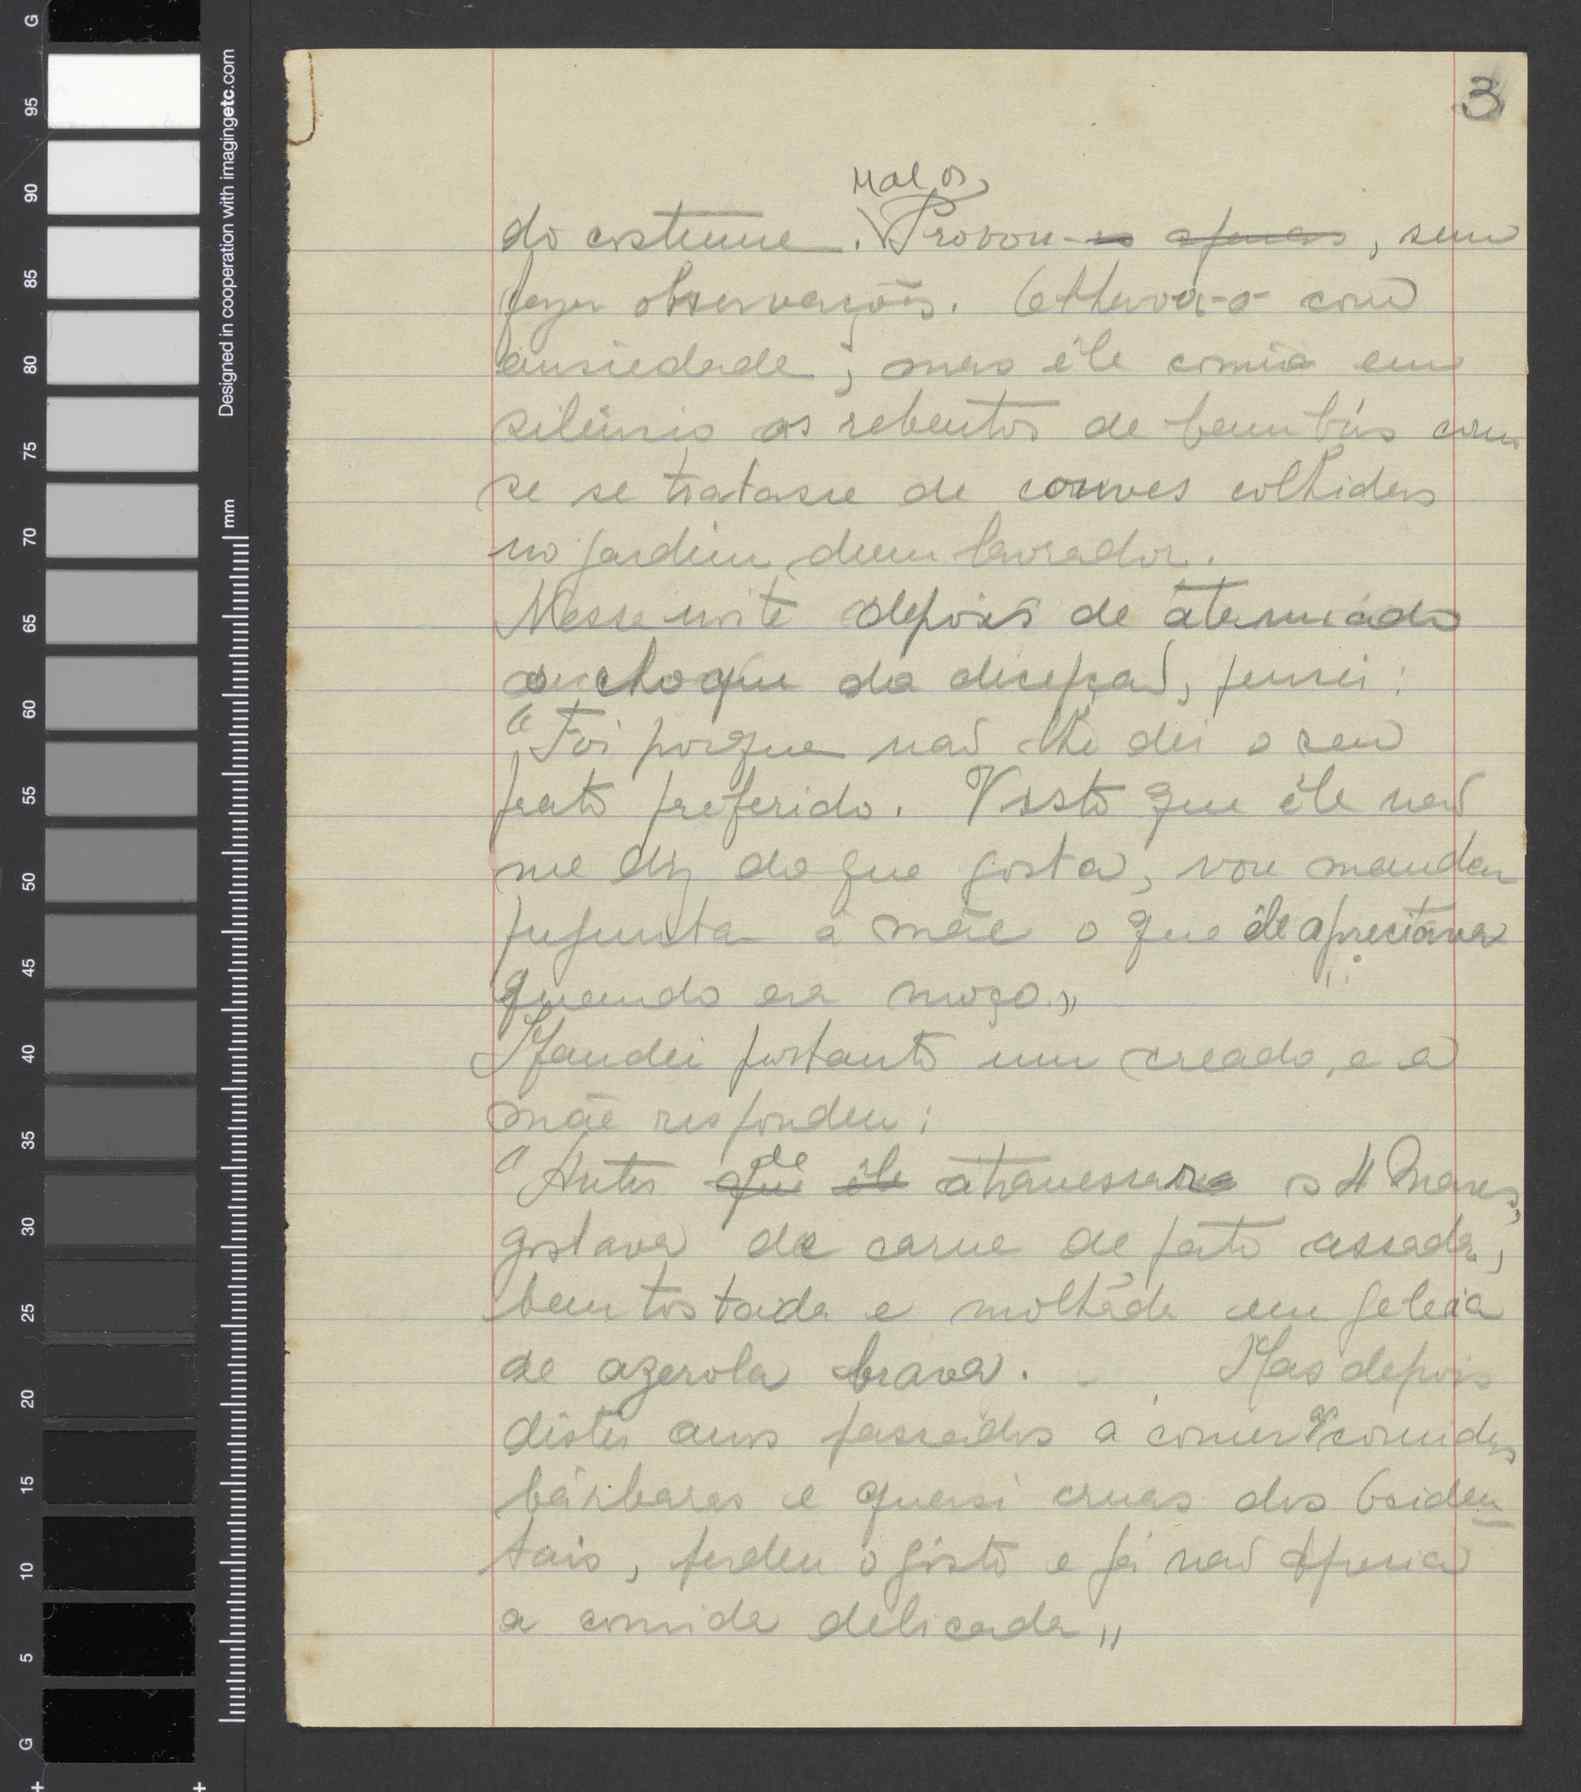 3
Mal os
do costume. Provou-os apenas, sem
fazer observações. Olhava-o com
ansiedade; mas êle comia em
silêncio os rebentos de bambús como
se se tratasse de couves colhidas
no jardim dum lavrador.
Nessa noite depois de atenuado
o choque da decepção, pensei:
"Foi porque não lhe dei o seu
prato preferido. Visto que êle não
me diz do que gosta, vou mandar
preguntar à mãe o que êle apreciava
quando era moço."
Mandei portanto um creado, e a
mãe respondeu:
de
"Antes que êle atravessar os 4 Mares,
gostava de carne de pato assada,
bem tostada e molhada em geleia
de azerola brava. Mas depois
dêstes anos passados a comer comidas
bárbaras e quasi cruas dos Ociden
tais, perdeu o gôsto e já não aprecia
a comida delicada"
G
95
90
85
80
75
70
65
60
55
50
45
40
35
30
25
20
15
10
5
G
Designed in cooperation with imagingetc.com
mm